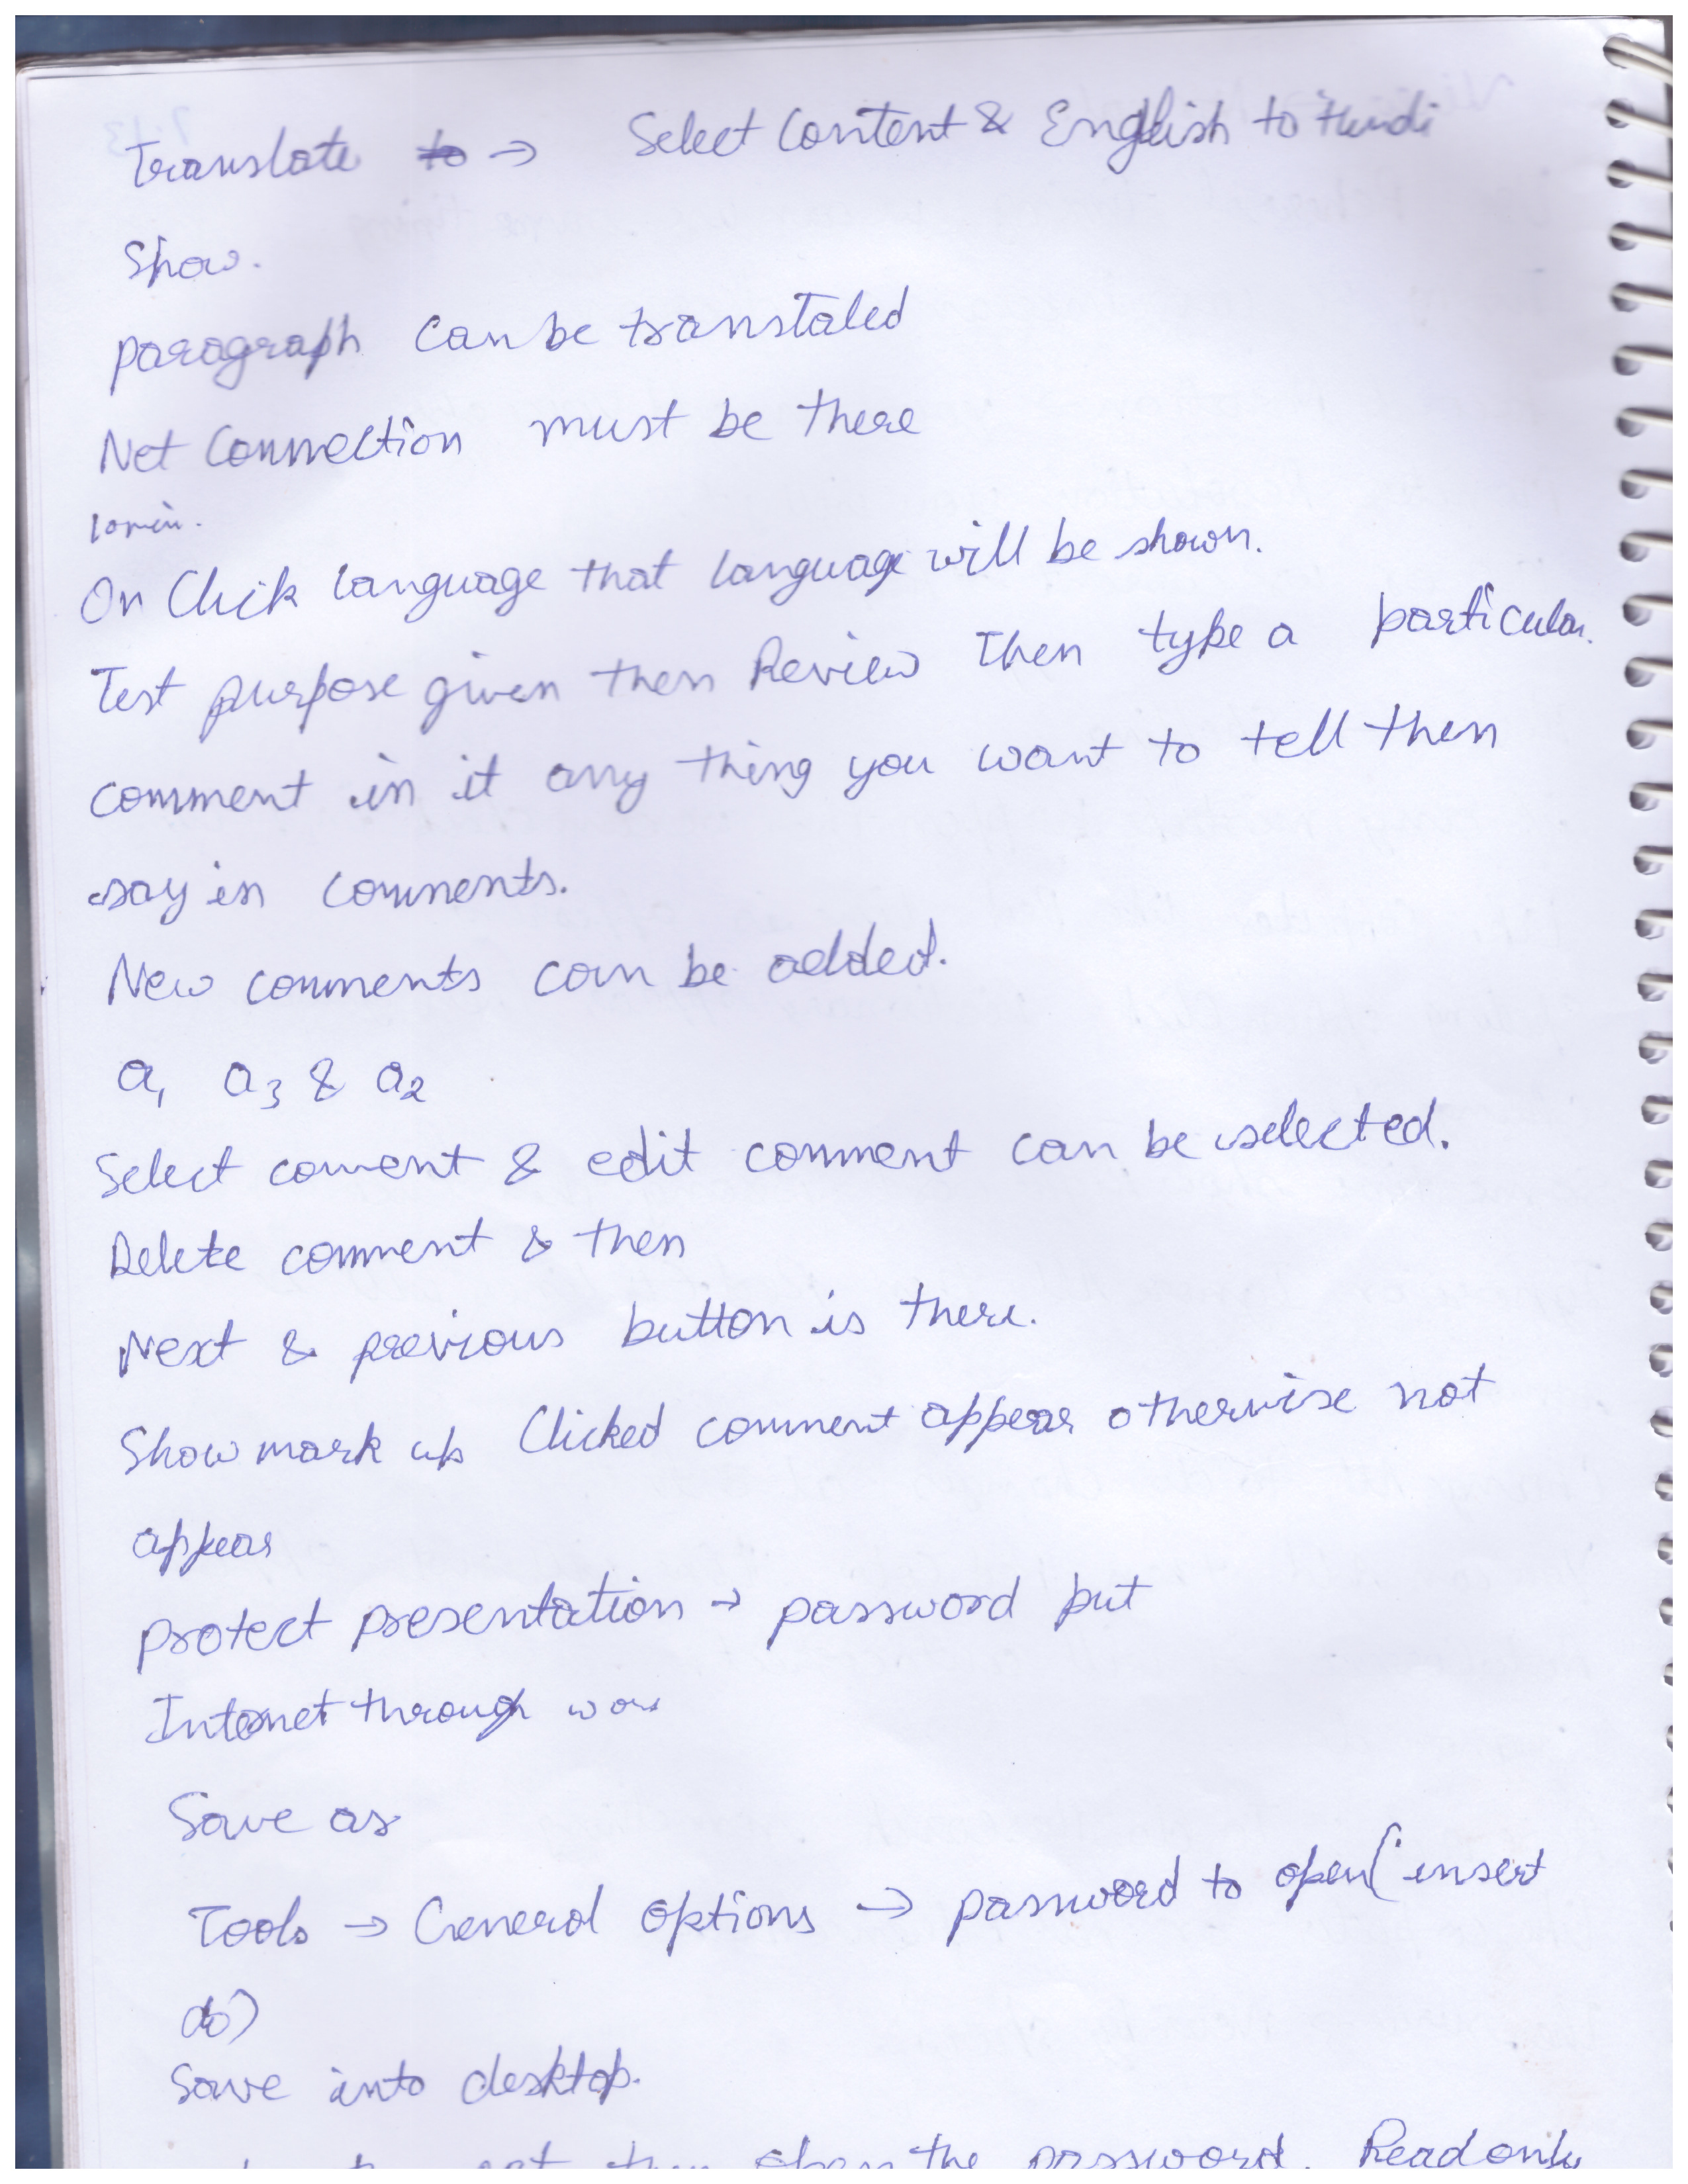 Translate to → Select Content & English to Hindi
Show.
paragraph can be transtaled
Net Connection must be there
On Click language that language will be shown.
Test purpose given then Review Then type a particular
comment in it any thing you want to tell then
say in comments.
New comments can be added.
a1 a3 & a2
Select coment & edit comment can be selected.
Delete comment & then
Next & previous button is there.
Show mark up Clicked comment appear otherwise not
appear
protect presentation → password put
Internet through
Save as
Tools → General options → password to open (insert
do)
Save into desktop.
open the password. Read only